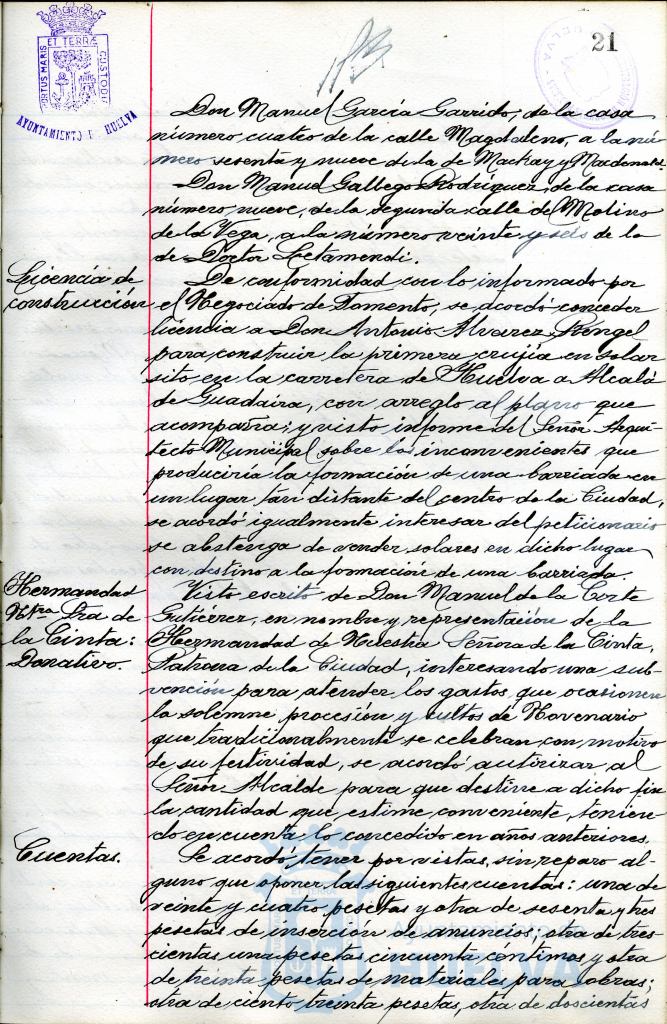 PORTUS MARIS ET TERRÆ CUSTODIA
AYUNTAMIENTO DE HUELVA
21
Don Manuel García Garrido, de la casa
número cuatro de la calle Magdalena, a la nú-
mero sesenta y nueve de la de Mackay y Macdonald.
Don Manuel Gallego Rodríguez, de la casa
número nueve, de la segunda calle de Molino
de la Vega, a la número veinte y seis de la
de Doctor Letamendi.
Licencia de
construcción
De conformidad con lo informado por
el Negociado de Fomento, se acordó conceder
licencia a Don Antonio Alvarez Rengel
para construir la primera crujía en solar
sito en la carretera de Huelva a Alcalá
de Guadaira, con arreglo al plano que
acompaña; y visto informe del Señor Arqui-
tecto Municipal sobre los inconvenientes que
produciría la formación de una barriada en
un lugar tan distante del centro de la Ciudad,
se acordó igualmente interesar del peticionario
se abstenga de vender solares en dicho lugar
con destino a la formación de una barriada.
Hermandad
Ntra Sra de
la Cinta:
Donativo.
Visto escrito de Don Manuel de la Corte
Gutiérrez, en nombre y representación de la
Hermandad de Nuestra Señora de la Cinta,
Patrona de la Ciudad, interesando una sub-
vención para atender los gastos que ocasionen
la solemne procesión y cultos de Novenario
que tradicionalmente se celebran con motivo
de su festividad, se acordó autirizar al
Señor Alcalde para que destine a dicho fin
la cantidad que estime conveniente, tenien-
do en cuenta lo concedido en años anteriores.
Cuentas.
Se acordó tener por vistas, sin reparo al-
guno que oponer las siguientes cuentas: una de
veinte y cuatro pesetas y otra de sesenta y tres
pesetas de inserción de anuncios; otra de tres-
cientas una pesetas cincuenta céntimos y otra
de treinta pesetas de materiales para obras;
otra de ciento treinta pesetas, otra de doscientas
HUELVA